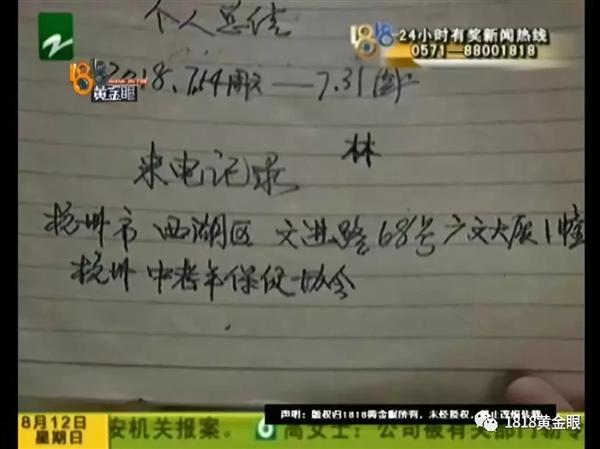 个人总结
18-24小时有奖新闻热线
0571-88001818
黄金眼
2018.7.14 周六——7.31
林
来电记录
杭州市 西湖区 文进路68号广文大厦1幢
杭州 中老年保促协会
声明：版权归1818黄金眼所有，未经授权，
8月12日
星期日
安机关报案。
高女士：公司被有关部门勒令
1818黄金眼